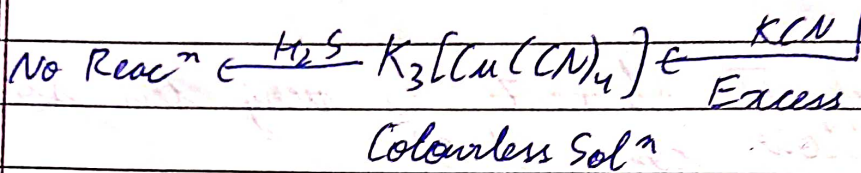 No Reacⁿ ← H₂S K₃[Cu(CN)₄] ← KCN Excess
Colourless Solⁿ